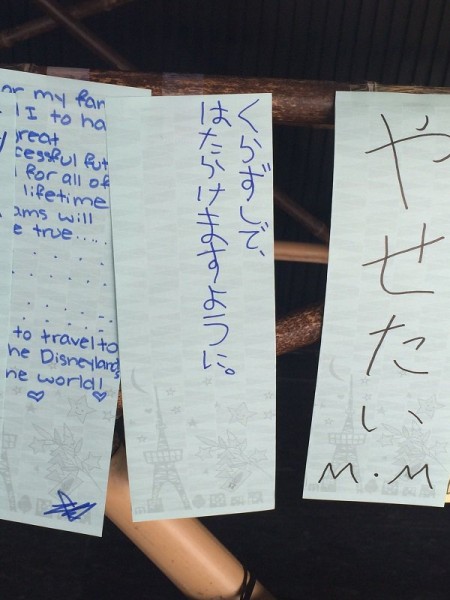 or my fam
I to ha
reat
cessful fut
for all of
lifetime
ams will
e true.....
to travel to
he Disneylands
he world!
くらずしで、
はたらけますように。
やせたい
M.M